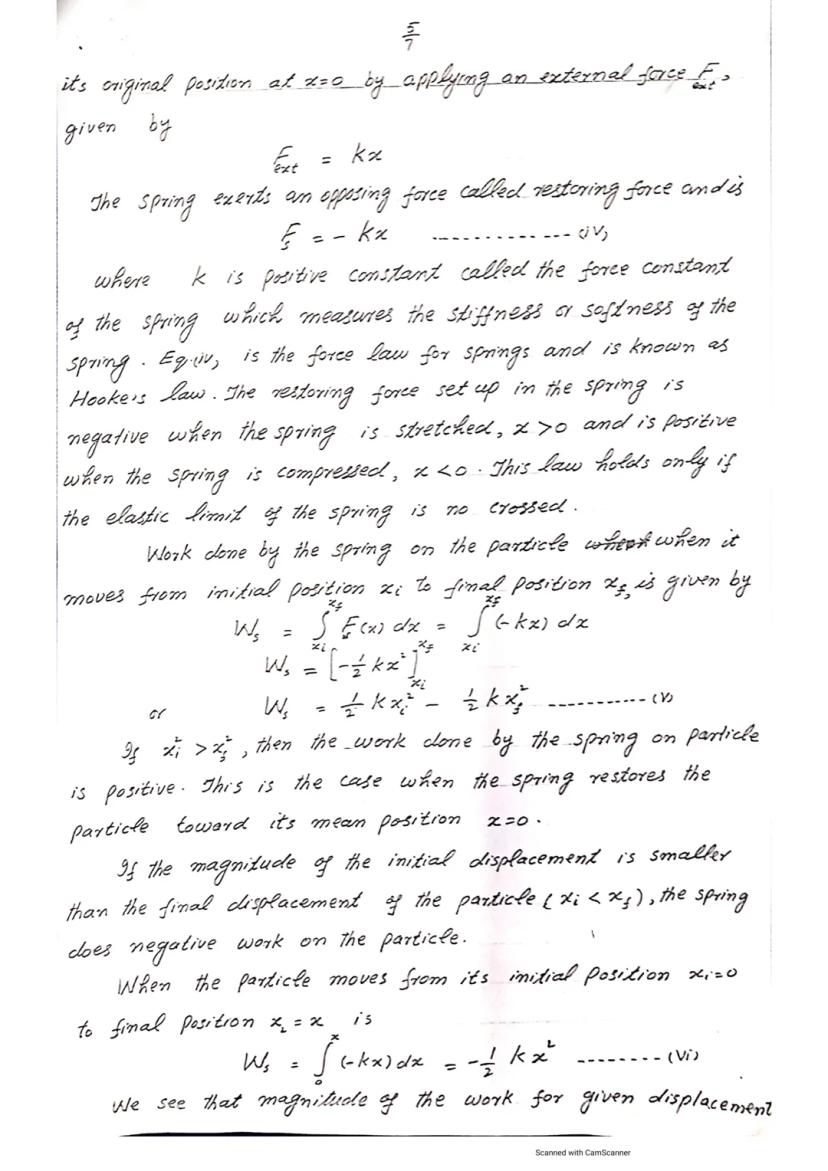 5/7
its original position at x=0 by applying an external force F_ext,
given by
F_ext = kx
The spring exerts an opposing force called restoring force and is
F_s = - kx ------------- (iv)
where k is positive constant called the force constant
of the spring which measures the stiffness or softness of the
spring. Eq.(iv) is the force law for springs and is known as
Hooke's law. The restoring force set up in the spring is
negative when the spring is stretched, x >0 and is positive
when the spring is compressed, x <0. This law holds only if
the elastic limit of the spring is no crossed.
Work done by the spring on the particle when it
moves from initial position xi to final position x_f, is given by
W_s = ∫_{xi}^{x_f} F_s(x) dx = ∫_{xi}^{x_f} (-kx) dx
W_s = [-½ kx²]_{xi}^{x_f}
or W_s = ½ kx_i² - ½ kx_f² ----------- (v)
If x_i² > x_f², then the work done by the spring on particle
is positive. This is the case when the spring restores the
particle toward its mean position x=0.
If the magnitude of the initial displacement is smaller
than the final displacement of the particle (xi < x_f), the spring
does negative work on the particle.
When the particle moves from its initial position xi=0
to final position x_L = x is
W_s = ∫_0^x (-kx) dx = -½ kx² -------- (vi)
We see that magnitude of the work for given displacement
Scanned with CamScanner